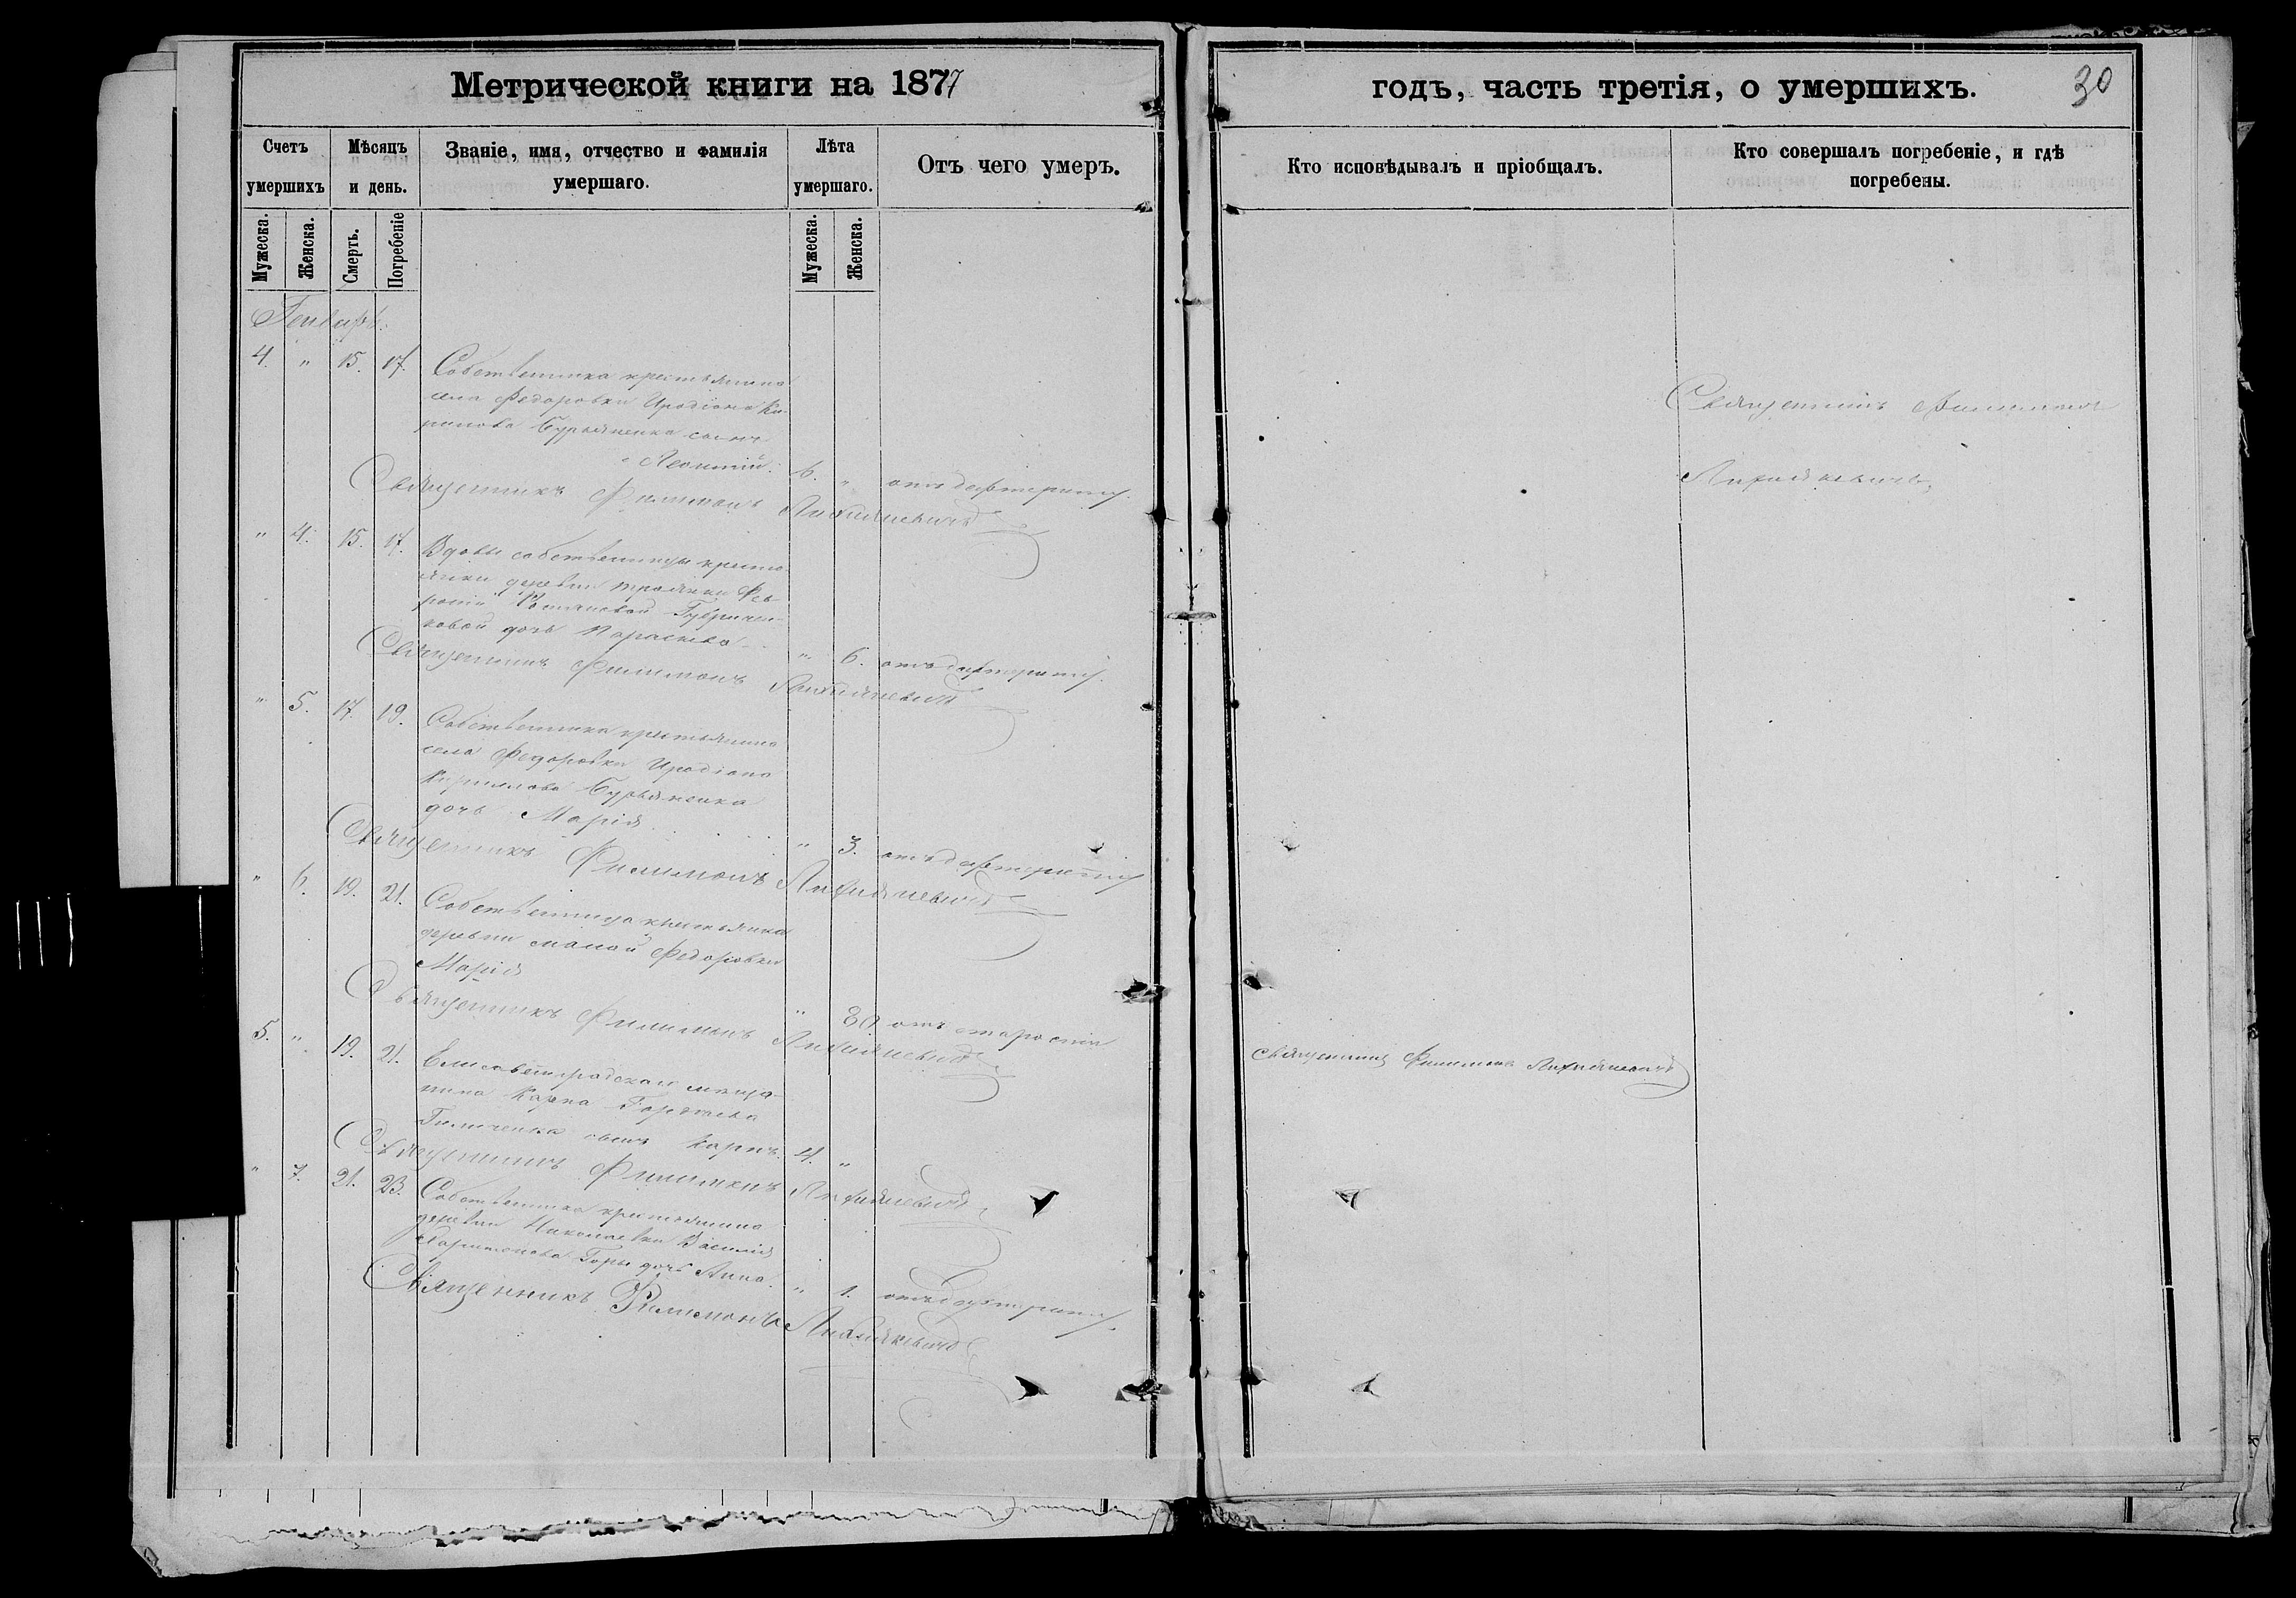 Метрической книги на 1877
годъ, часть третія, о умершихъ.
30
Счетъ умершихъ
Мѣсяцъ и день.
Званіе, имя, отчество и фамилія умершаго.
Лѣта умершаго.
Отъ чего умеръ.
Кто исповѣдывалъ и пріобщалъ.
Кто совершалъ погребеніе, и гдѣ погребены.
Мужеска.
Женска.
Смерть.
Погребеніе
Мужеска.
Женска.
Генварь.
4. " 15. 17. Собственника крестьянина
села Федоровки Иродіона Ки-
рилова Бурьяненка сынъ
Леонтій. 6. " отъ дифтериту.
Священникъ Филимонъ
Священникъ Филимонъ
" 4. 15. 17. Вдовы собственницы кресть-
янки деревни Троянки Фев-
роніи
ковой дочь Параскева " 6. отъ дифтериту.
Священникъ Филимонъ
" 5. 17. 19. Собственника крестьянина
села Федоровки Иродіона
Кирилова Бурьяненка
дочь Марія " 3. отъ дифтериту
Священникъ Филимонъ
" 6. 19. 21. Собственница крестьянка
деревни малой Федоровки
Марія " 80. отъ старости
Священникъ Филимонъ
Священникъ Филимонъ
5. " 19. 21. Елисаветградскаго мѣща-
нина Карпа
сынъ Карпъ. 4. "
Священникъ Филимонъ
" 7. 21. 23. Собственника крестьянина
деревни Николаевки Василія
Харитонова Горы дочь Анна. " 1. отъ дифтериту
Священникъ Филимонъ